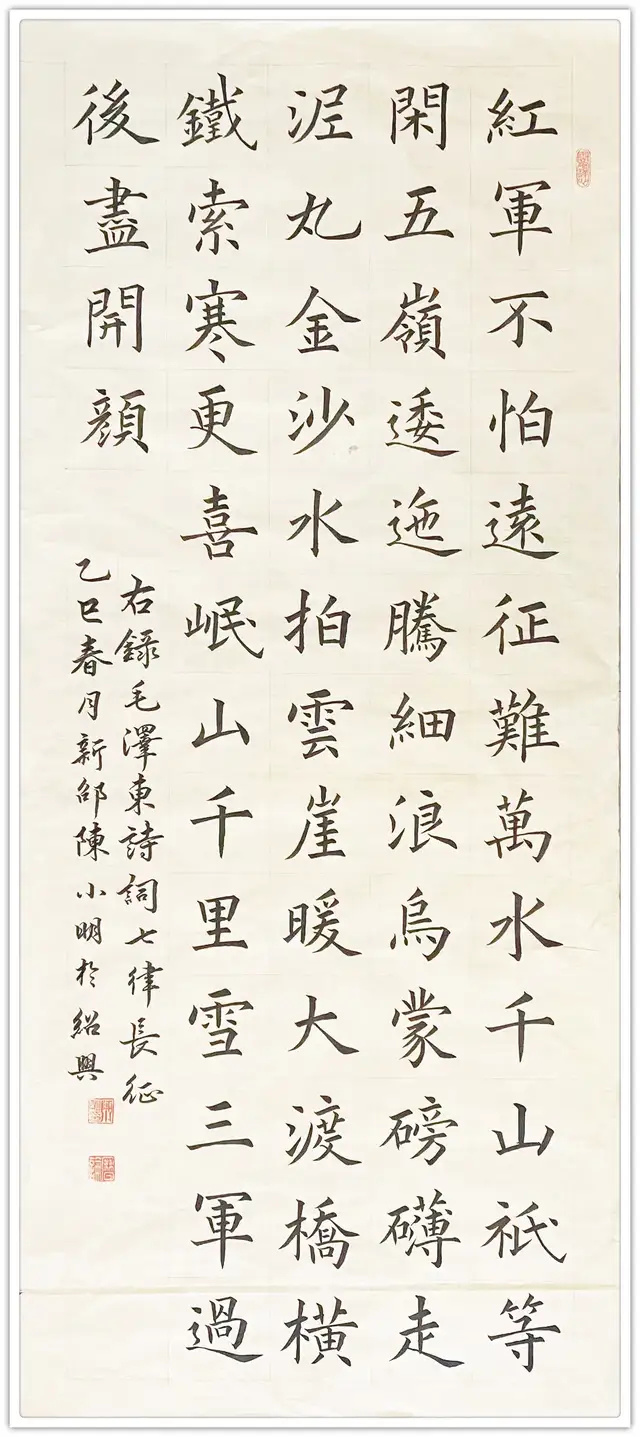 紅軍不怕遠征難萬水千山衹等
閑五嶺逶迤騰細浪烏蒙磅礴走
泥丸金沙水拍雲崖暖大渡橋橫
鐵索寒更喜岷山千里雪三軍過
後盡開顔
右録毛澤東詩詞七律長征
乙巳春月新邵陳小明於紹興